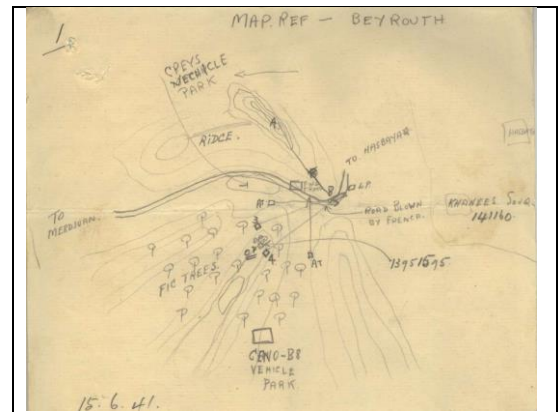 MAP. REF — BEYROUTH
1
GREYS
VECHICLE
PARK
A.
RIDGE.
TO HASBAYAR
L.P.
TO
MERDJUAN.
ROAD BLOWN
BY FRENCH.
KHANEES SOUQ.
141160.
3
4
AT
B951595
FIG TREES
VEHICLE
PARK.
15. 6. 41.